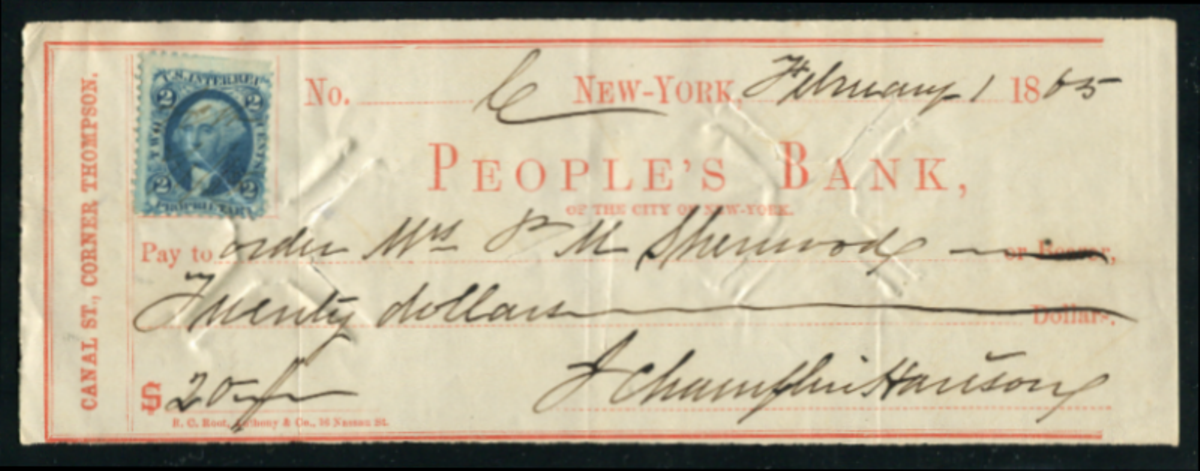 U.S. INTER. REV.
2 2
TWO CENTS
2 2
PROPRIETARY
No. NEW-YORK, February 1 1865
PEOPLE'S BANK,
OF THE CITY OF NEW-YORK.
Pay to order Mrs P M Sherwood or Bearer,
Twenty dollars Dollars.
$ 20
J Champlin Harison
R. C. Root, Anthony & Co., 16 Nassau St.
CANAL ST., CORNER THOMPSON.